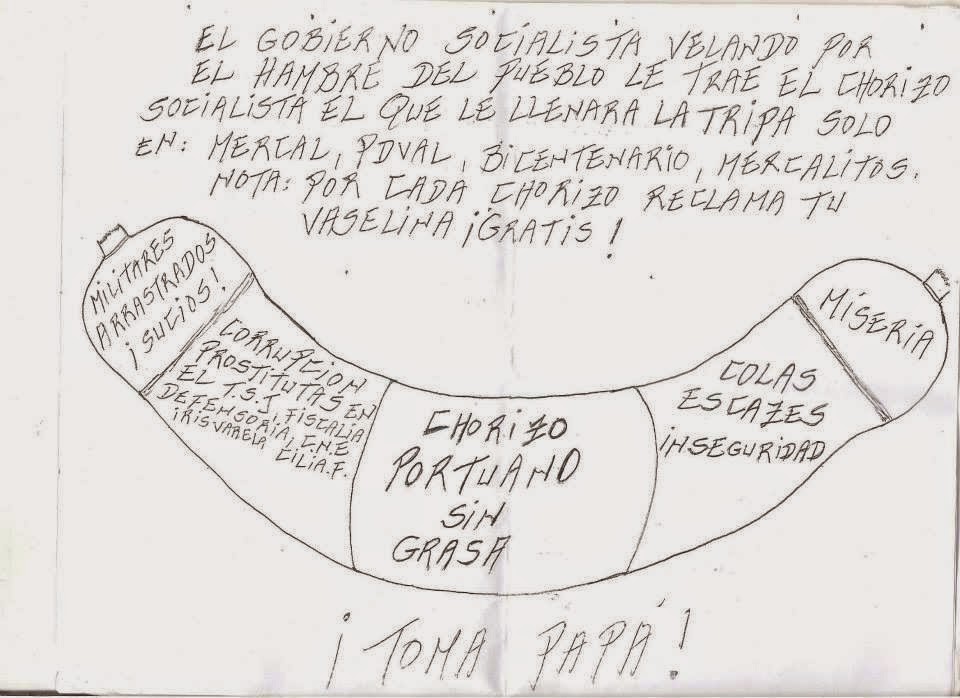 EL GOBIERNO SOCIALISTA VELANDO POR
EL HAMBRE DEL PUEBLO LE TRAE EL CHORIZO
SOCIALISTA EL QUE LE LLENARA LA TRIPA SOLO
EN: MERCAL, PDVAL, BICENTENARIO, MERCALITOS.
NOTA: POR CADA CHORIZO RECLAMA TU
VASELINA ¡GRATIS!
MILITARES
ARRASTRADOS
¡SUCIOS!
CORRUPCION
PROSTITUTAS EN
EL T.S.J, FISCALIA
DEFENSORIA, C.N.E
IRIS VARELA,
CILIA.F.
CHORIZO
PORTUANO
SIN
GRASA
COLAS
ESCAZES
INSEGURIDAD
MISERIA
¡TOMA PAPÁ!